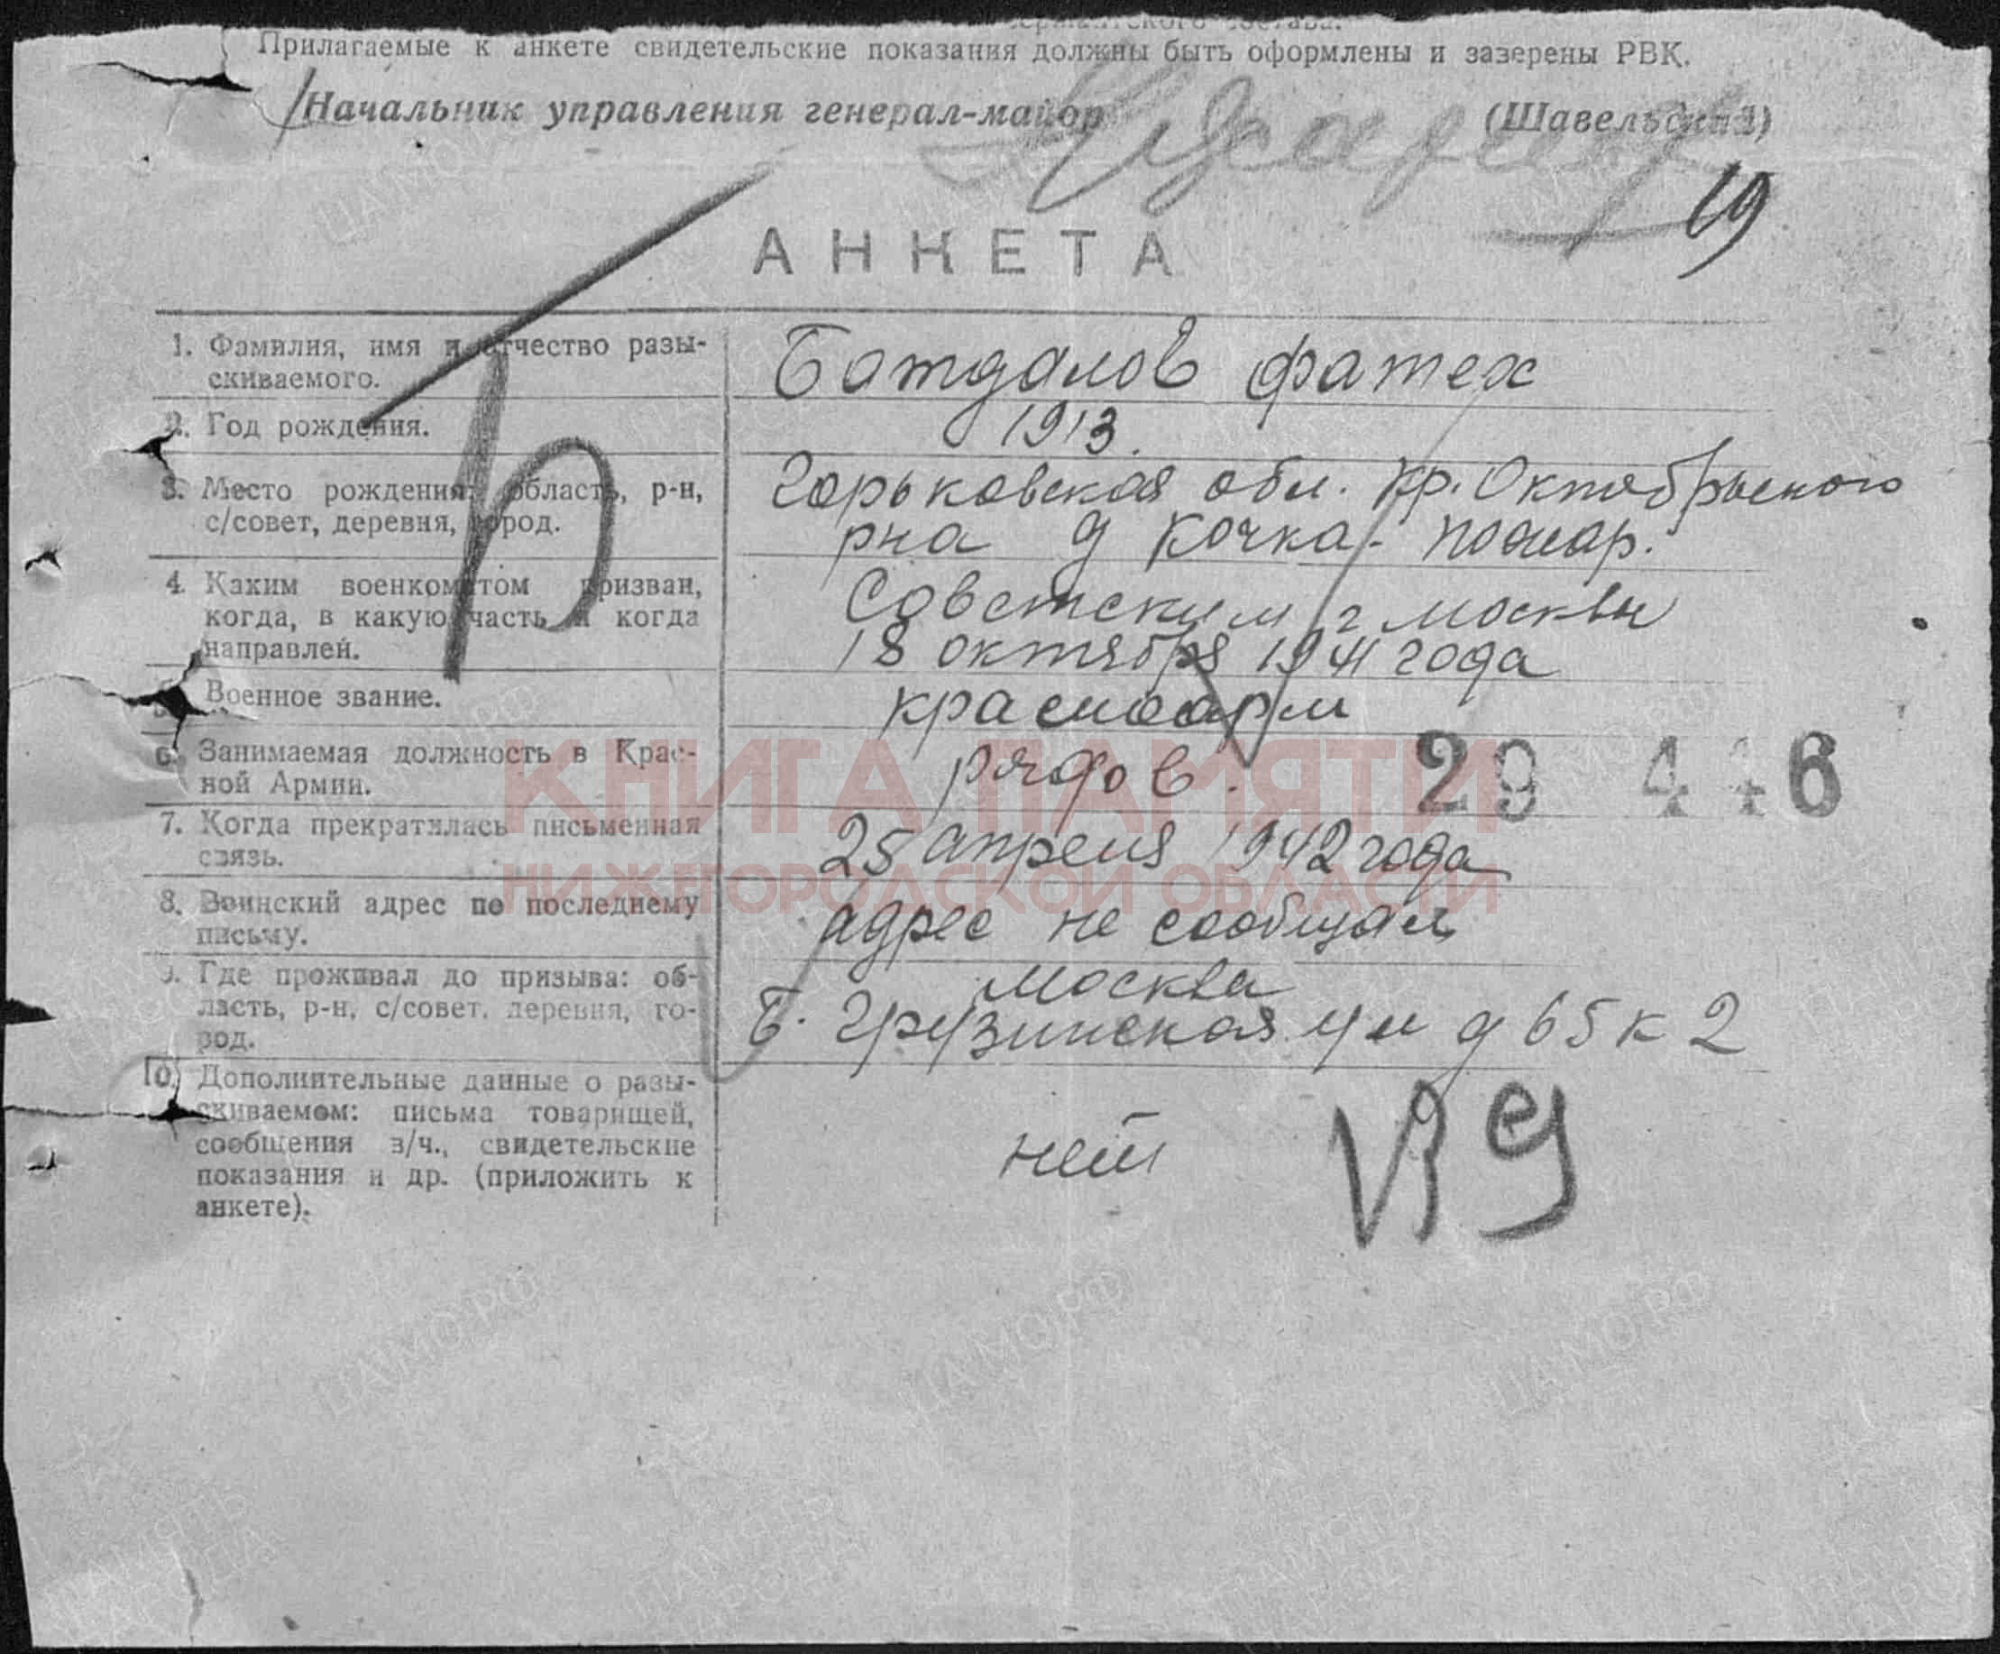 Прилагаемые к анкете свидетельские показания должны быть оформлены и заверены РВК.
Начальник управления генерал-майор (Шавельский)
19
АНКЕТА
1. Фамилия, имя и отчество разы-
скиваемого.
Ботдалов Фатех
2. Год рождения.
1913.
3. Место рождения: область, р-н,
с/совет, деревня, город.
Горьковская обл. Кр. Октябрьского
рна д Кочка-Пожар.
4. Каким военкоматом призван,
когда, в какую часть и когда
направлен.
Советским г Москвы
18 октября 1941 года
5. Военное звание.
красноарм
6. Занимаемая должность в Крас-
ной Армии.
рядов.
29 446
7. Когда прекратилась письменная
связь.
25 апреля 1942 года
8. Воинский адрес по последнему
письму.
адрес не сообщал
9. Где проживал до призыва: об-
ласть, р-н, с/совет, деревня, го-
род.
Москва
Б. Грузинская ул д 65 к 2
10. Дополнительные данные о разы-
скиваемом: письма товарищей,
сообщения в/ч., свидетельские
показания и др. (приложить к
анкете).
нет
КНИГА ПАМЯТИ
НИЖЕГОРОДСКОЙ ОБЛАСТИ